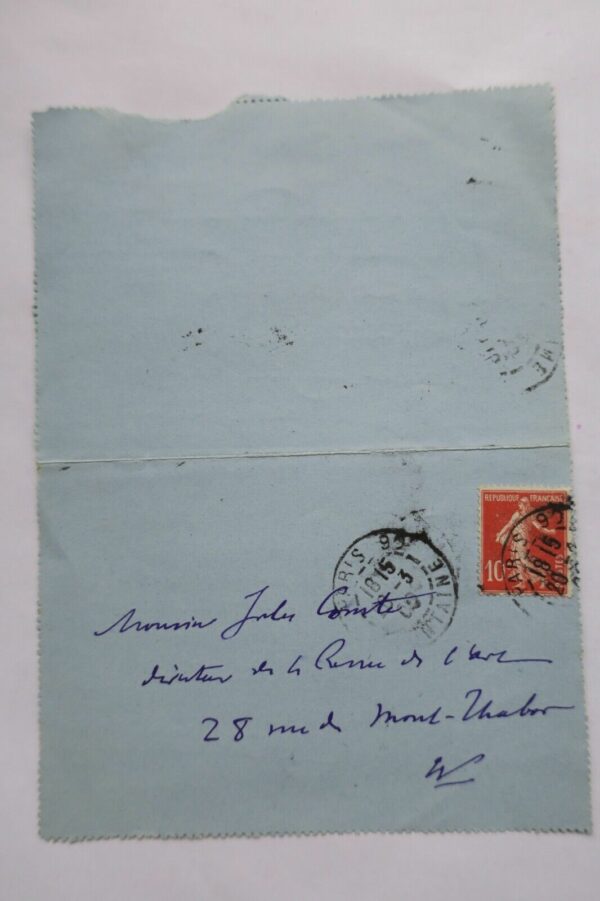 REPUBLIQUE FRANÇAISE
10
PARIS 93
18 15
Monsieur Jules Comte
directeur de la Revue de l'art
28 rue du Mont-Thabor